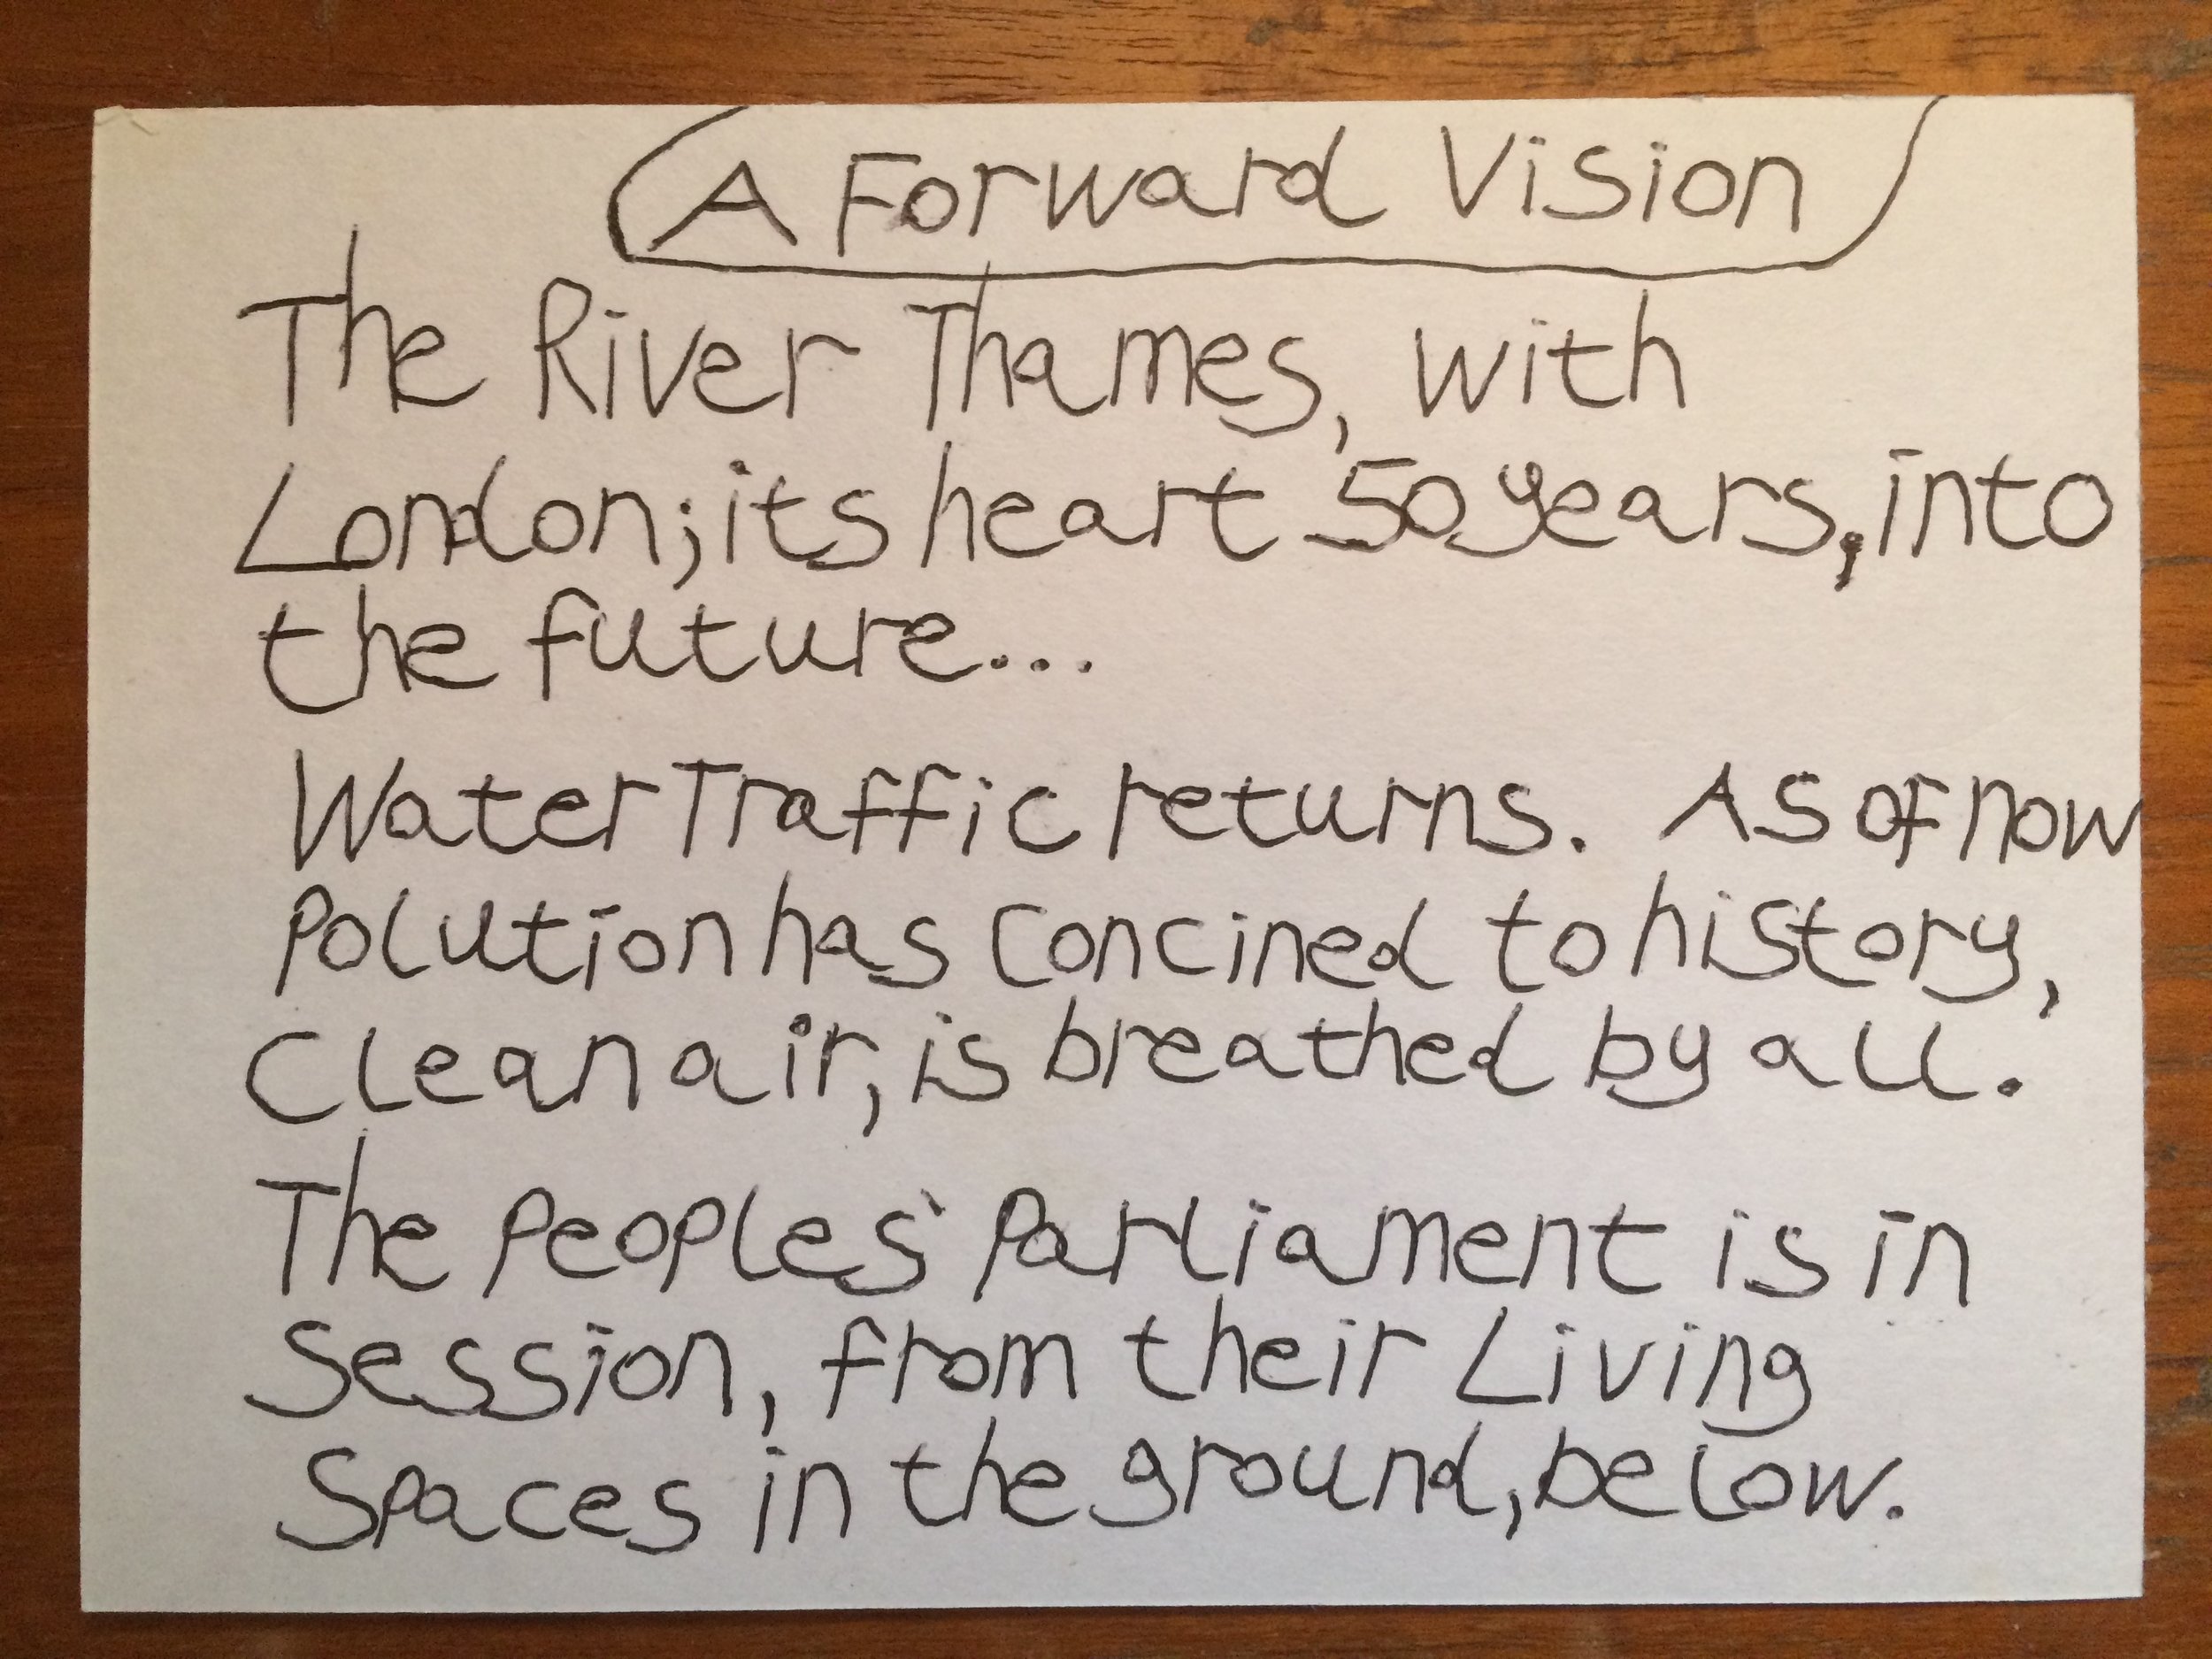 A Forward Vision
The River Thames, with
London; its heart 50 years, into
the future...
Water Traffic returns. As of now
Polution has concined to history,
Clean air, is breathed by all.
The Peoples' Parliament is in
Session, from their Living
Spaces in the ground, below.